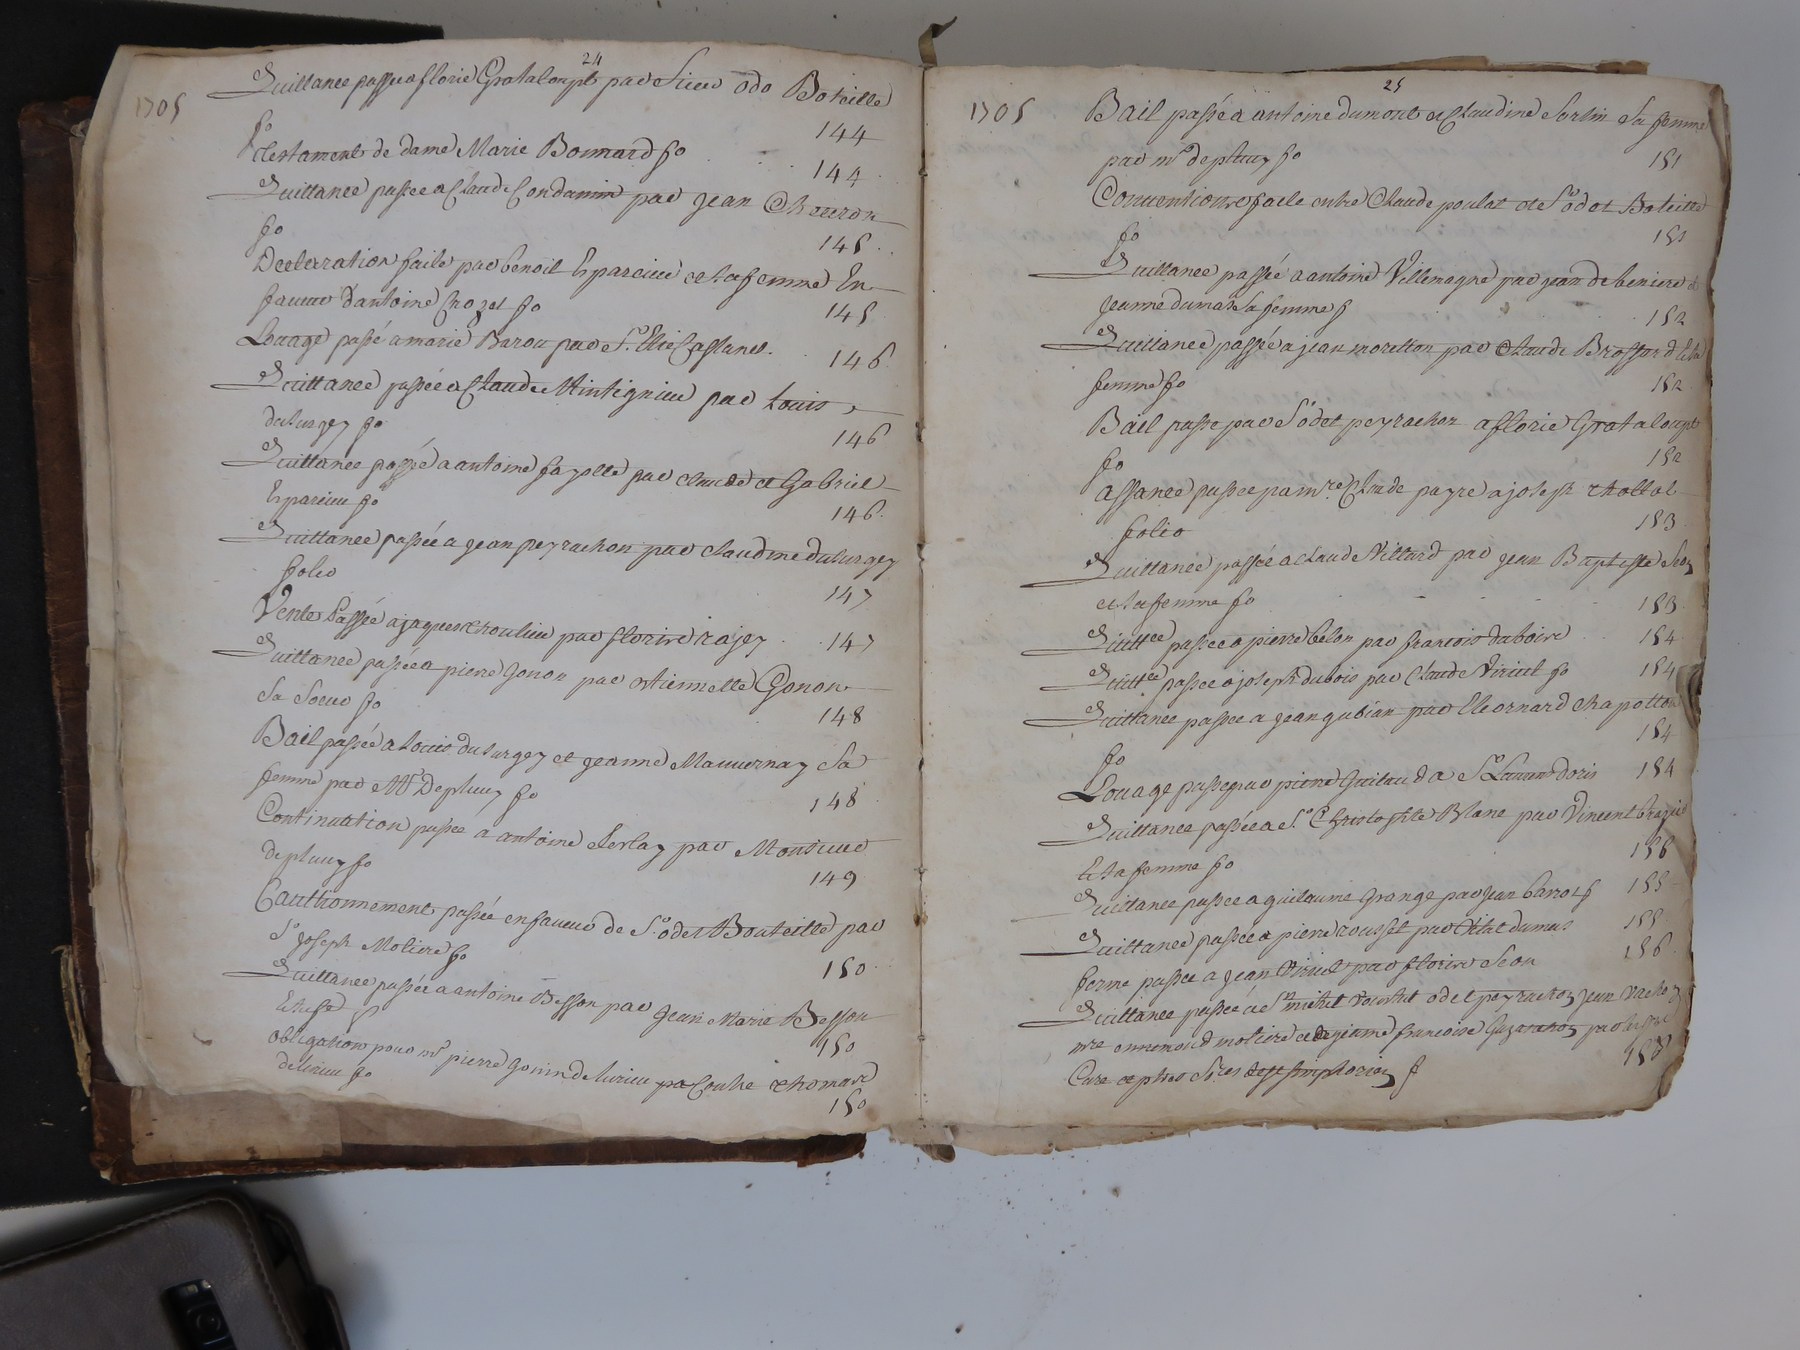 24
1705
Quittance passee a florie Grataloupt par Sieur Odo Boteille
fo 144
Testament de dame Marie Bonnard fo 144
Quittance passee a Claude Condamin par Jean Cheuron
fo 145
Declaration faite par benoit Eparcieu et sa femme En
faueur d'antoine Crozet fo 145
Louage passé a marie Barou par Sr. Elie Caffanet. 146
Quittance passée a Claude Mintignieu par Louis
dulurgey fo 146
Quittance passé a antoine fayolle par claude et Gabriel
Eparcieu fo 146
Quittance passée a jean peyrachon par claudine dulurgey
folio 147
Vente Passée a jaques thoulieu par florive rajey 147
Quittance passée a pierre gonon par Etiennette Gonon
Sa Soeur fo 148
Bail passée a Louis dulurgey et jeanne Mauuernay Sa
femme par Mr Depluuy fo 148
Continuation passée a antoine terlay par Monsieur
depluuy fo 149
Cauthionnement passée en faueur de Sr. odet Bouteille par
Sr joseph Moliere fo 150
Quittance passée a antoine Besson par Jean Marie Besson
150
Obligation pour mr pierre gonin delurieu par Couhe thomas
delurieu fo 150
25
1705
Bail passée a antoine dumont et Claudine Sertin Sa femme
par mr depluuy fo 151
Conuentions faite entre Claude poulat et Sr odet Boteille
fo 151
Quittance passée a antoine Villemagne par jean debeniere et
jeanne dumas Sa femme f 152
Quittance passée a jean moretton par Claude Brossard Et Sa
femme fo 152
Bail passe par Sr odet peyrachon a florie Grataloupt
fo 152
assance passee par mre Claude payre a joseph thollot
folio 153
Quittance passée a claude Villard par jean Baptiste Seon
et Sa femme fo 153
Quittée passee a pierre belon par francois duboire 154
Quittée passee a joseph dubois par Claude Viriut fo 154
Quittance passee a jean gubian par Eleornard Chapotton
fo 154
Louage passe par pierre Guitaud a Sr Laurans doris 154
Quittance passée a Sr. Christophle Blanc par Vincent
Et Sa femme fo 156
Quittance passee a guiloume Grange par jean barrot f 155
Quittance passée a pierre rousset par Vital dumas 155
ferme passee a jean Viriut par florive Seon 156
Quittance passée a Sr michel rourhet odet peyrachon jean vachon
mre ennemond moliere et dejeanne francoise
Cure et pbres St. symphorien f 158